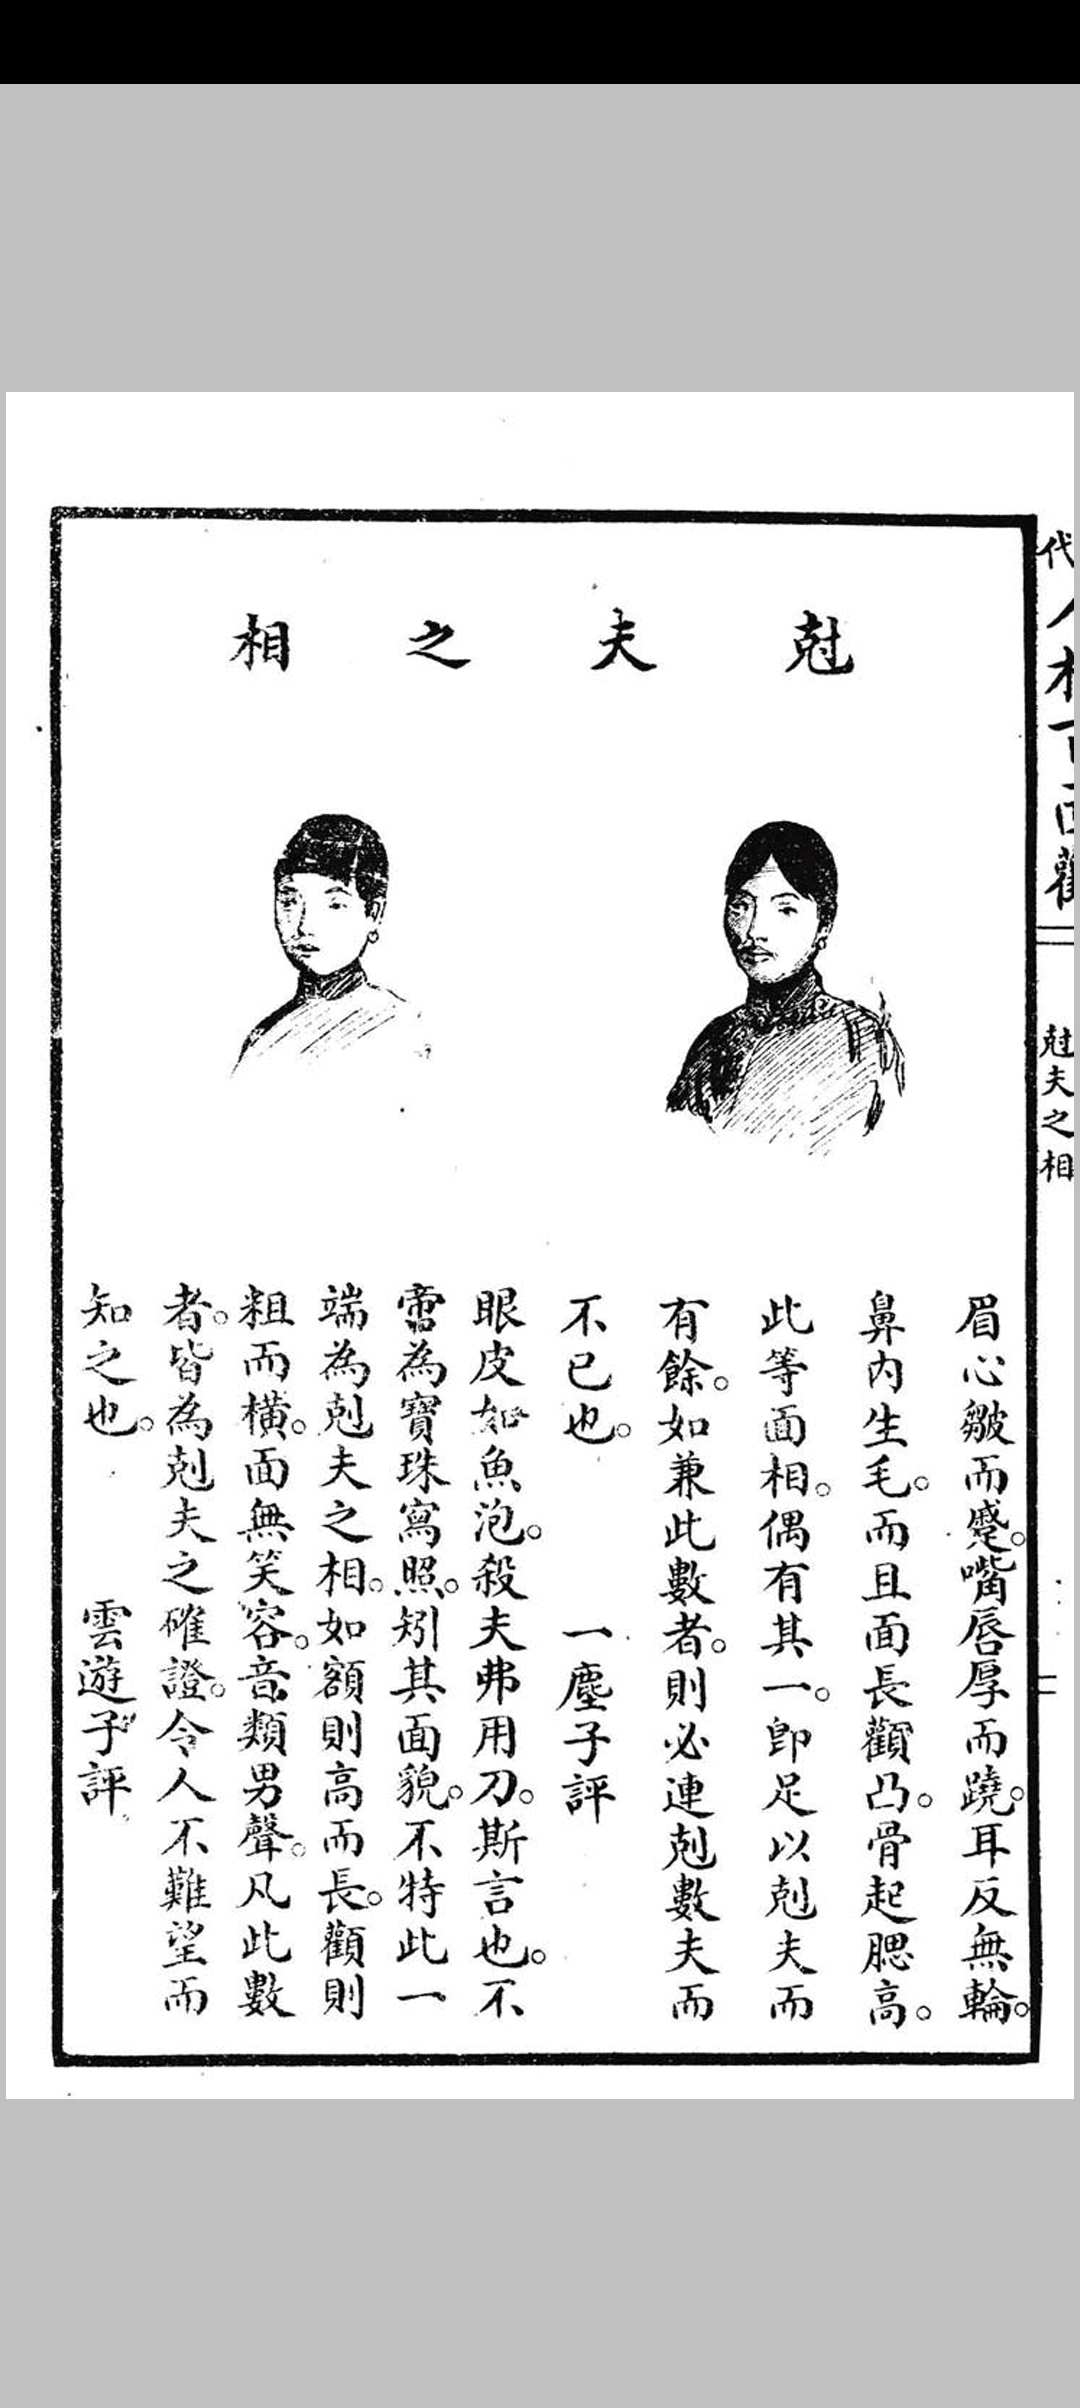 尅夫之相
眉心皺而蹙。嘴唇厚而蹺。耳反無輪。
鼻內生毛。而且面長顴凸。骨起腮高。
此等面相。偶有其一。卽足以剋夫而
有餘。如兼此數者。則必連剋數夫而
不已也。　一塵子評
眼皮如魚泡。殺夫弗用刀。斯言也。不
啻為寶珠寫照。矧其面貌。不特此一
端為剋夫之相。如額則高而長。顴則
粗而橫。面無笑容。音類男聲。凡此數
者。皆為剋夫之確證。令人不難望而
知之也。　雲遊子評
尅夫之相